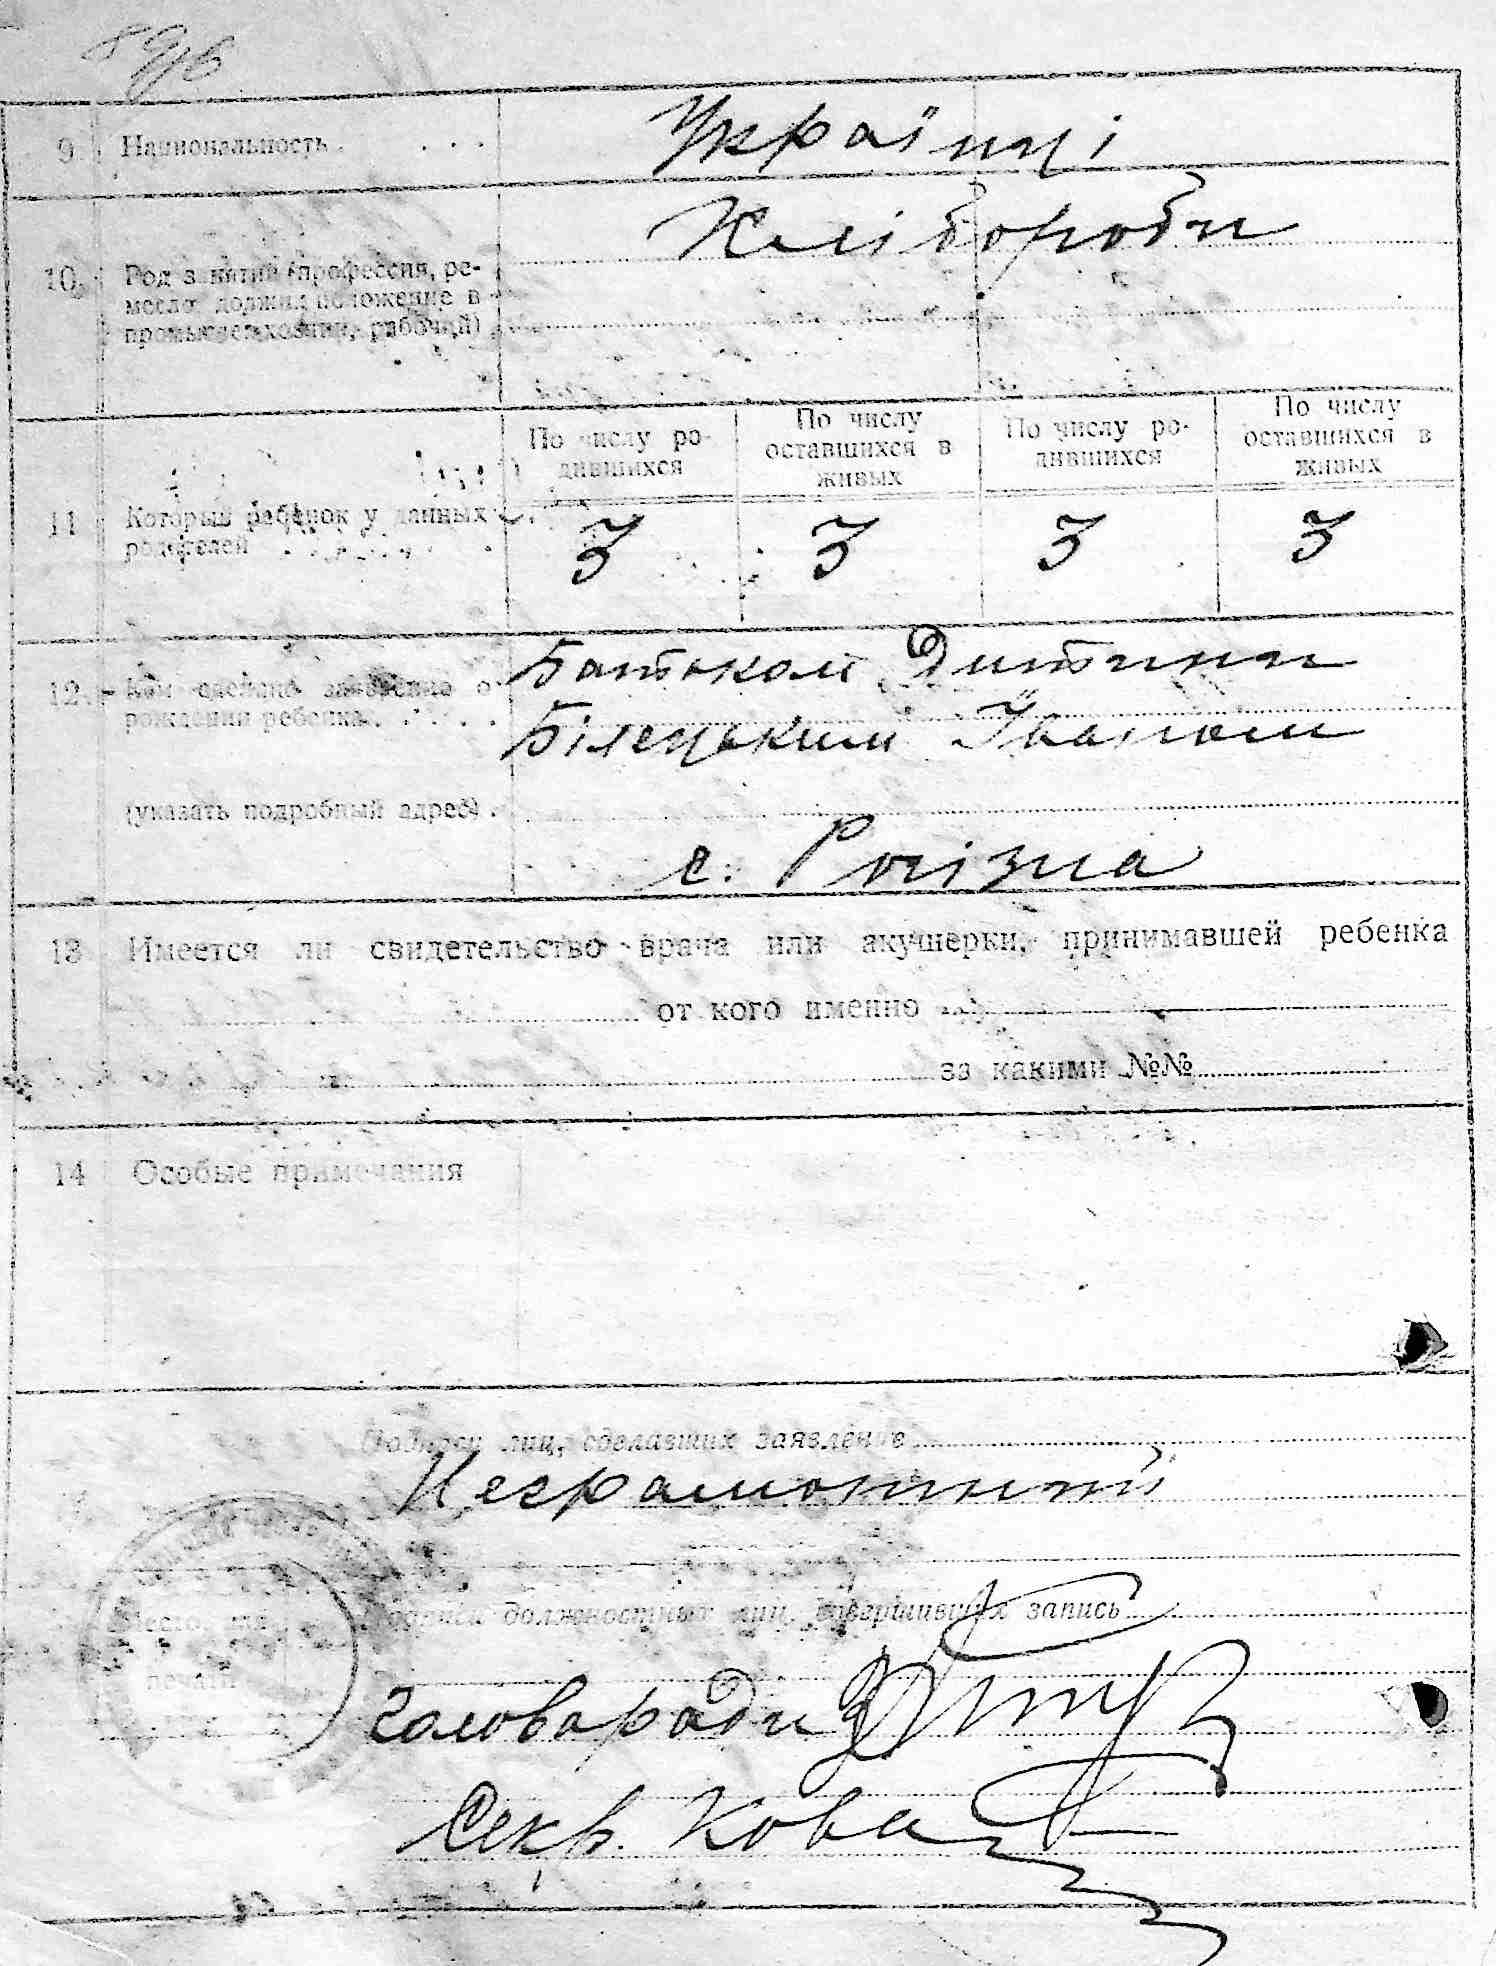 9 Национальность . . . .
Українці
Хлібороби
10. Род занятий (профессия, ре-
месло должн., положение в
промысле хозяин, рабочий)
По числу ро-
дившихся
По числу
оставшихся в
живых
По числу ро-
дившихся
По числу
оставшихся в
живых
11 Который ребенок у данных
родителей
3 3 3 3
12. Кем сделано заявление о
рождении ребенка
Батьком Дитини
Білецьким Іваном
(указать подробный адрес) .
с. Розізна
13 Имеется ли свидетельство врача или акушерки, принимавшей ребенка
от кого именно
за какими №№
14 Особые примечания
Подписи лиц, сделавших заявление
Неграмотний
Место для
печати
Подписи должностных лиц, совершивших запись
Головаради
Секр. Кова